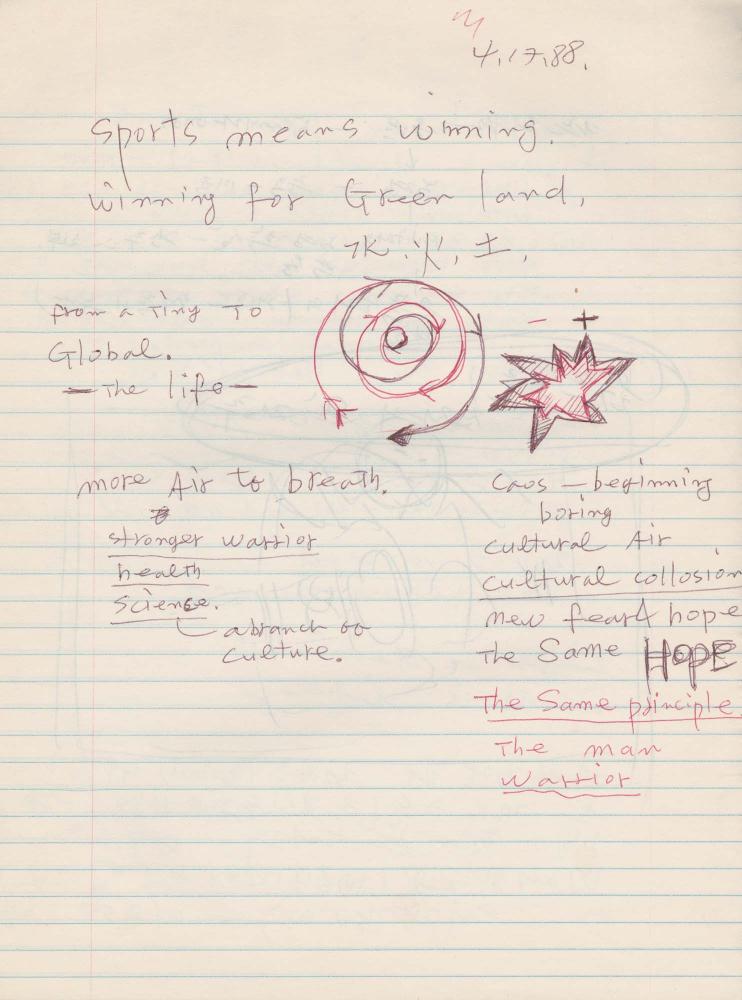 4.17.88.
Sports means winning.
winning for Green land,
水, 火, 土,
from a Tiny To
Global.
— The life —
− +
more Air to breath.
stronger warrior
health
science.
a branch of
culture.
caos — beginning
boring
cultural Air
cultural collosion
new fear & hope
The Same HOPE
The Same principle
The man
warrior